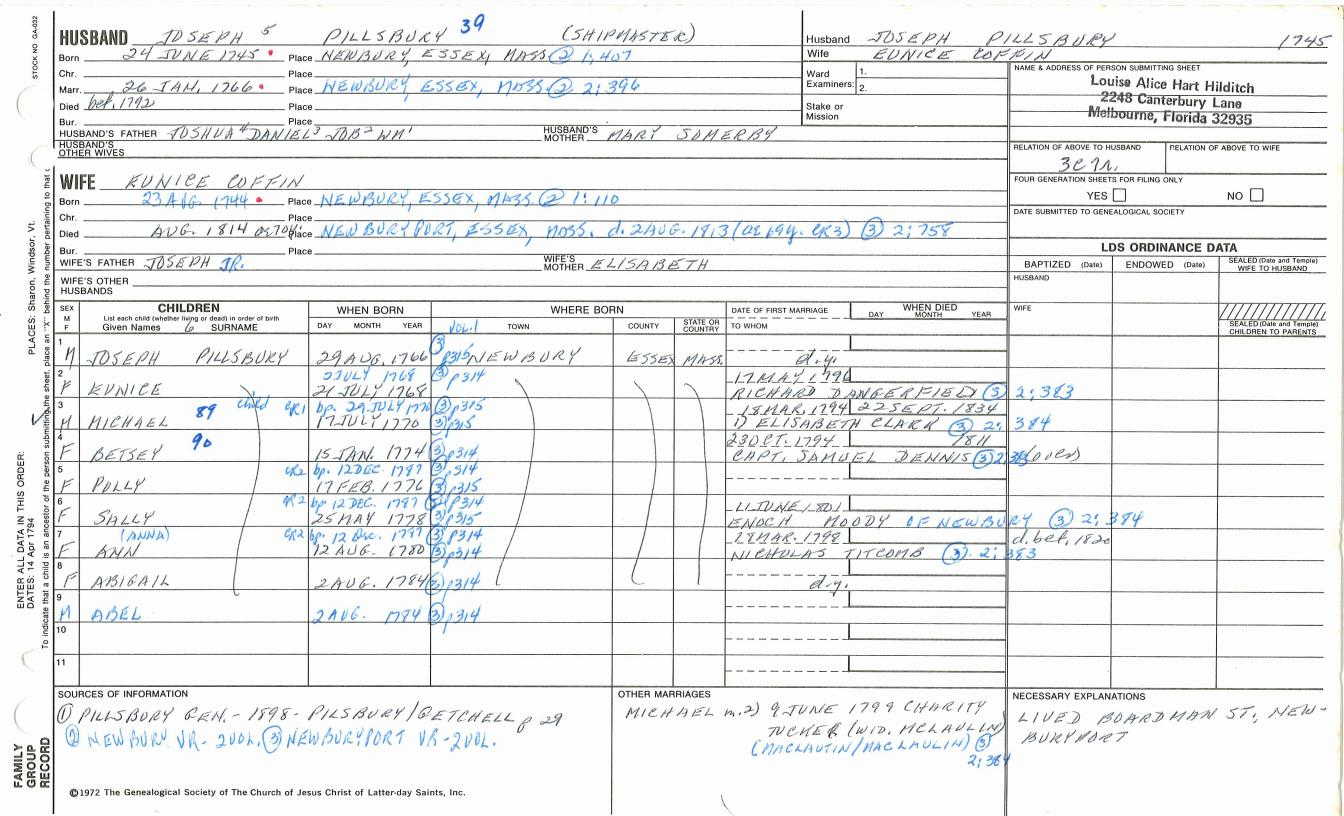 STOCK NO. GA-032
HUSBAND JOSEPH 5 PILLSBURY 39 (SHIPMASTER)
Born 24 JUNE 1745 Place NEWBURY, ESSEX, MASS ② 1:407
Chr. Place
Marr. 26 JAN, 1766 Place NEWBURY, ESSEX, MASS ② 2:396
Died bef. 1792 Place
Bur. Place
HUSBAND'S FATHER JOSHUA⁴ DANIEL³ JOB² WM¹ HUSBAND'S MOTHER MARY SOMERBY
HUSBAND'S OTHER WIVES
Husband JOSEPH PILLSBURY 1745
Wife EUNICE COFFIN
Ward Examiners: 1.
2.
Stake or Mission
NAME & ADDRESS OF PERSON SUBMITTING SHEET
Louise Alice Hart Hilditch
2248 Canterbury Lane
Melbourne, Florida 32935
RELATION OF ABOVE TO HUSBAND RELATION OF ABOVE TO WIFE
3C7r.
FOUR GENERATION SHEETS FOR FILING ONLY
YES NO
DATE SUBMITTED TO GENEALOGICAL SOCIETY
WIFE EUNICE COFFIN
Born 23 AUG. 1744 Place NEWBURY, ESSEX, MASS ② 1:110
Chr. Place
Died AUG. 1814 ae 70y. Place NEWBURYPORT, ESSEX, MASS. d. 2 AUG. 1813 (ae 69y. CR3) ③ 2:758
Bur. Place
WIFE'S FATHER JOSEPH JR. WIFE'S MOTHER ELISABETH
WIFE'S OTHER HUSBANDS
LDS ORDINANCE DATA
BAPTIZED (Date) ENDOWED (Date) SEALED (Date and Temple) WIFE TO HUSBAND
HUSBAND
WIFE
SEALED (Date and Temple) CHILDREN TO PARENTS
SEX M F CHILDREN WHEN BORN WHERE BORN DATE OF FIRST MARRIAGE WHEN DIED
List each child (whether living or dead) in order of birth
Given Names 6 SURNAME DAY MONTH YEAR VOL.1 TOWN COUNTY STATE OR COUNTRY TO WHOM DAY MONTH YEAR
1 M JOSEPH PILLSBURY 29 AUG. 1766 ③ p315 NEWBURY ESSEX MASS d.y.
2 2 JULY 1768 ③ p314 17 MAY 1796
F EUNICE 21 JULY 1768 RICHARD DANGERFIELD ③ 2:383
3 89 child CR1 bp. 29 JULY 1770 ③ p315 18 MAR. 1794 22 SEPT. 1834
M MICHAEL 17 JULY 1770 ③ p315 1) ELISABETH CLARK ③ 2:384
4 90 23 OCT. 1794 1811
F BETSEY 15 JAN. 1774 ③ p314 CAPT. SAMUEL DENNIS ③ (over)
5 CR2 bp. 12 DEC. 1787 ③ p314
F POLLY 17 FEB. 1776 ③ p315
6 CR2 bp 12 DEC. 1787 ③ p314 11 JUNE 1801
F SALLY 25 MAY 1778 ③ p315 ENOCH MOODY OF NEWBURY ③ 2:384
7 (ANNA) CR2 bp. 12 Dec. 1787 ③ p314 28 MAR. 1798 d. bef. 1820
F ANN 12 AUG. 1780 ③ p314 NICHOLAS TITCOMB ③ 2:383
8 F ABIGAIL 2 AUG. 1784 ③ p314 d.y.
9 M ABEL 2 AUG. 1784 ③ p314
10
11
SOURCES OF INFORMATION
① PILLSBURY GEN. - 1898 - PILSBURY/GETCHELL p 29
② NEWBURY VR - 2 VOL. ③ NEWBURYPORT VR - 2 VOL.
OTHER MARRIAGES
MICHAEL m. 2) 9 JUNE 1799 CHARITY
TUCKER (WID. MCLAULIN)
(MACLAUTIN/MACLAULIN) ③
2:384
NECESSARY EXPLANATIONS
LIVED BOARDMAN ST., NEW-
BURYPORT
©1972 The Genealogical Society of The Church of Jesus Christ of Latter-day Saints, Inc.
FAMILY GROUP RECORD
ENTER ALL DATA IN THIS ORDER:
DATES: 14 Apr 1794 PLACES: Sharon, Windsor, Vt.
To indicate that a child is an ancestor of the person submitting the sheet, place an "X" behind the number pertaining to that